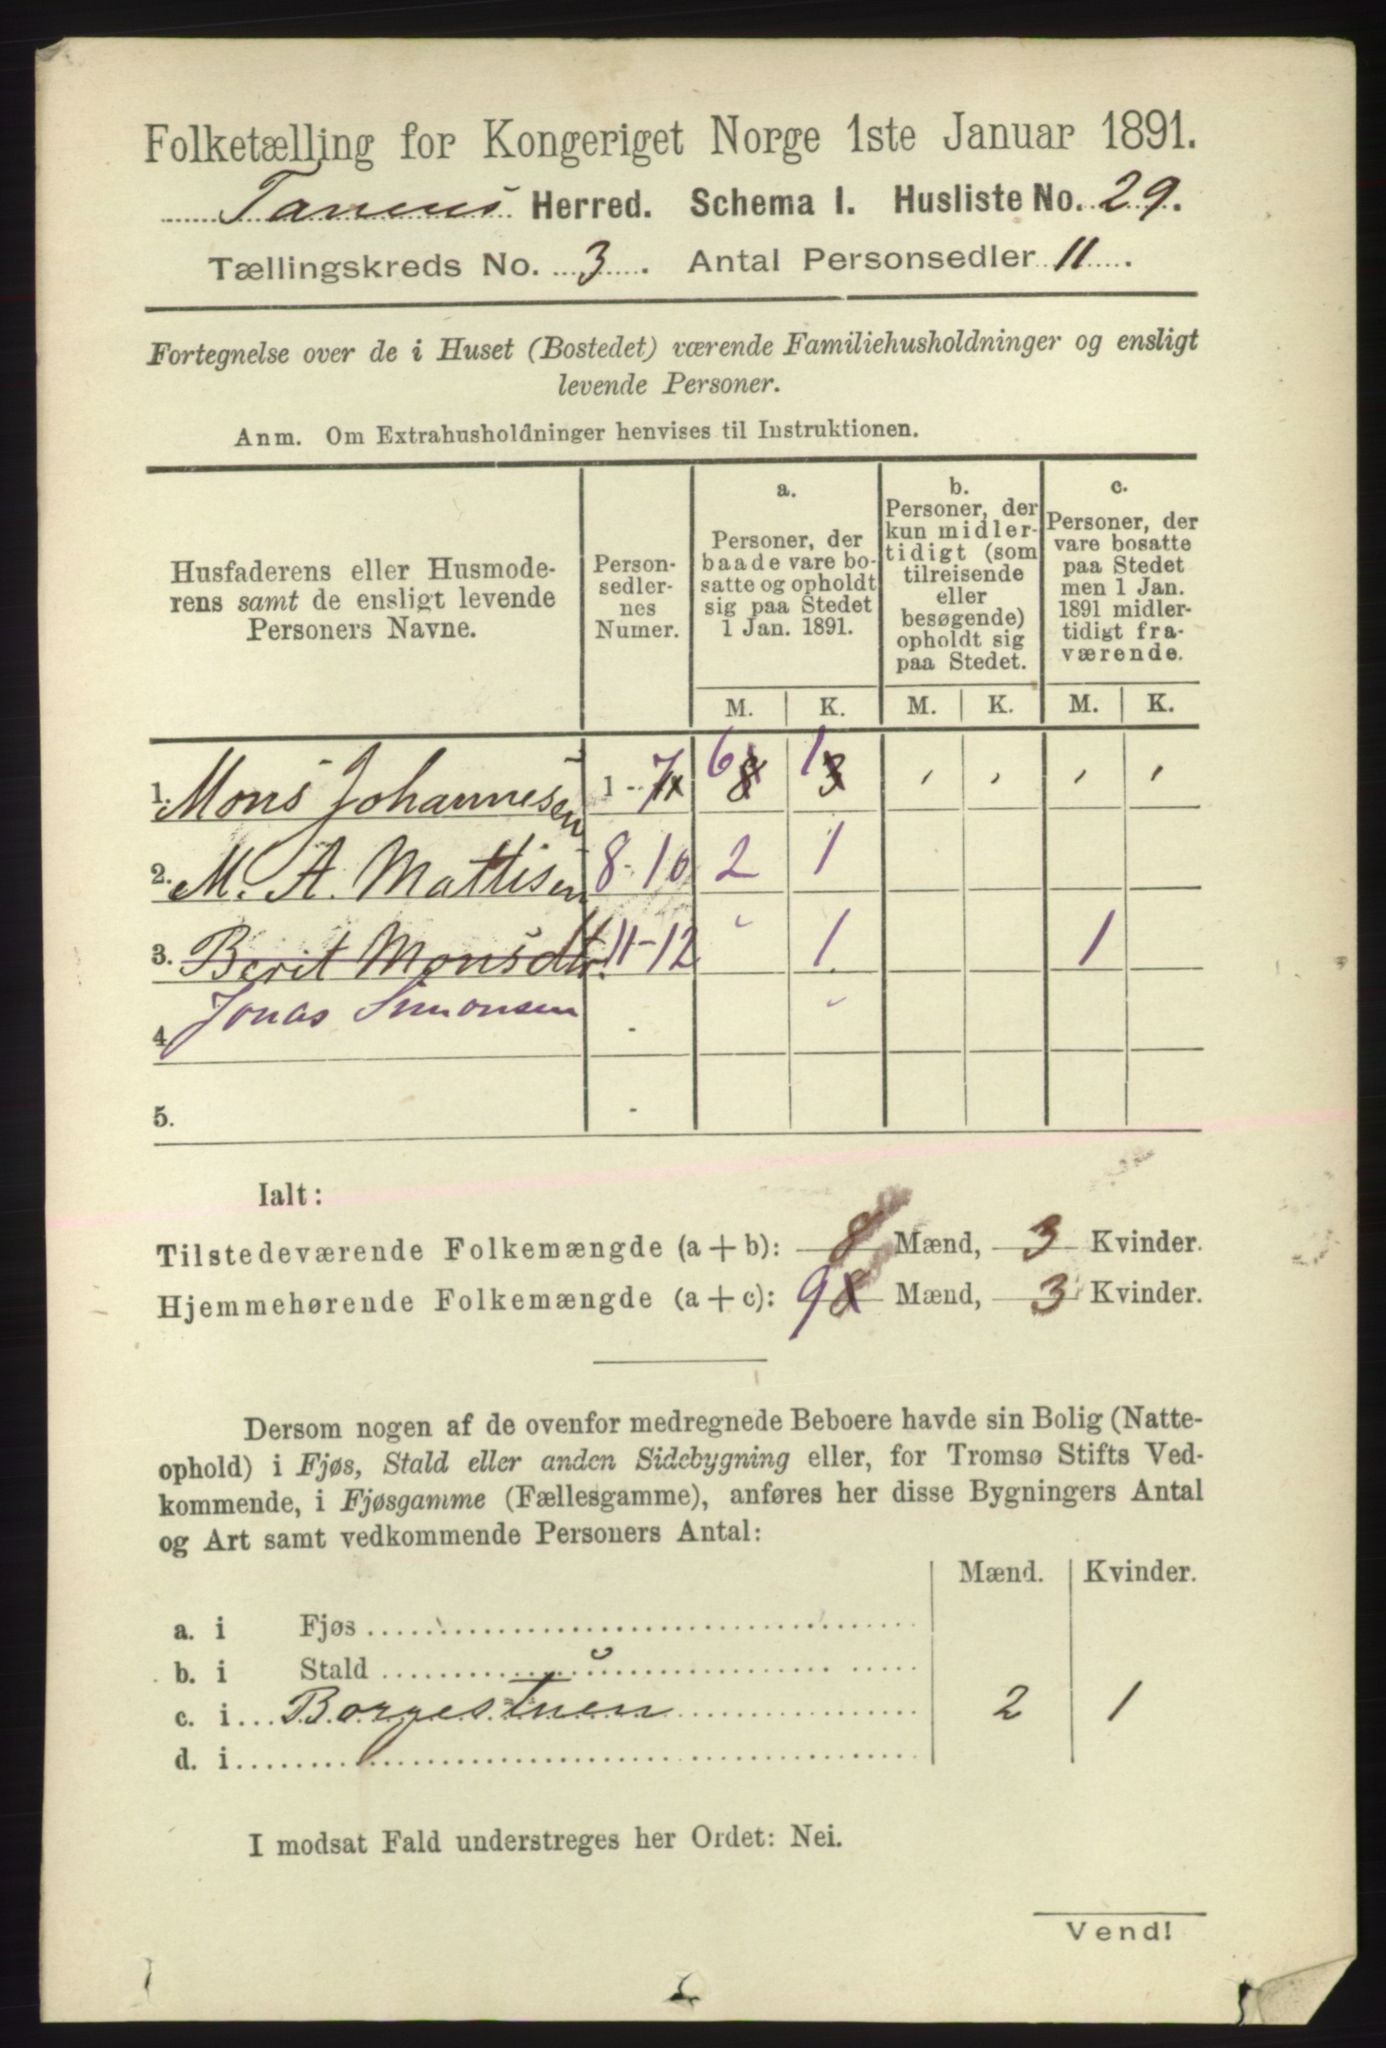 Folketælling for Kongeriget Norge 1ste Januar 1891.
Tanens Herred. Schema I. Husliste No. 29.
Tællingskreds No. 3. Antal Personsedler 11.
Fortegnelse over de i Huset (Bostedet) værende Familiehusholdninger og ensligt
levende Personer.
Anm. Om Extrahusholdninger henvises til Instruktionen.
Husfaderens eller Husmode-
rens samt de ensligt levende
Personers Navne.
Person-
sedler-
nes
Numer.
a.
Personer, der
baade vare bo-
satte og opholdt
sig paa Stedet
1 Jan. 1891.
b.
Personer, der
kun midler-
tidigt (som
tilreisende
eller
besøgende)
opholdt sig
paa Stedet.
c.
Personer, der
vare bosatte
paa Stedet
men 1 Jan.
1891 midler-
tidigt fra-
værende.
M. K. M. K. M. K.
1. Mons Johannesen 1-7 11 6 8 1 3 , , , ,
2. M. A. Mattisen 8-10 2 1
3. Berit Monsdtr. 11-12 1 1
4. Jonas Simonsen
5.
Ialt:
Tilstedeværende Folkemængde (a+b): 8 Mænd, 3 Kvinder.
Hjemmehørende Folkemængde (a+c): 9 8 Mænd, 3 Kvinder.
Dersom nogen af de ovenfor medregnede Beboere havde sin Bolig (Natte-
ophold) i Fjøs, Stald eller anden Sidebygning eller, for Tromsø Stifts Ved-
kommende, i Fjøsgamme (Fællesgamme), anføres her disse Bygningers Antal
og Art samt vedkommende Personers Antal:
Mænd. Kvinder.
a. i Fjøs
b. i Stald
c. i Borgestuen 2 1
d. i
I modsat Fald understreges her Ordet: Nei.
Vend!